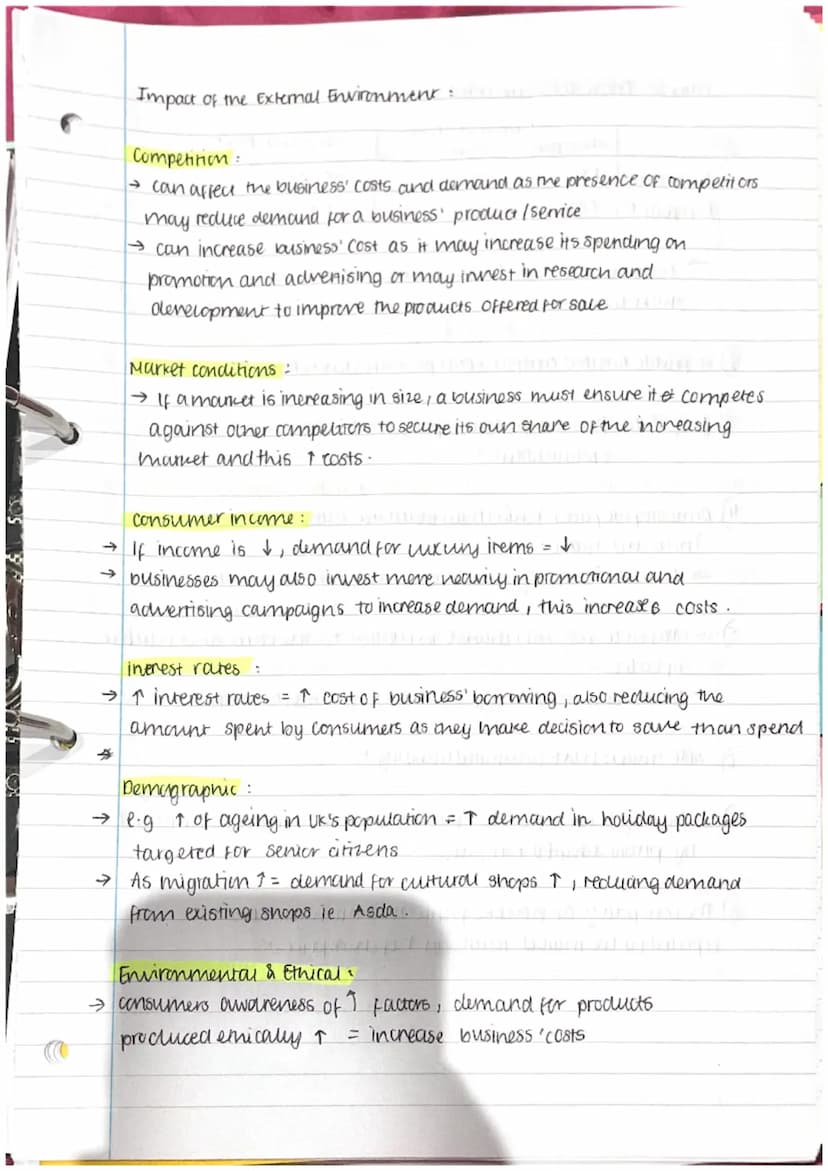 Impact of the External Environment :
Competition :
→ can affect the business' costs and demand as the presence of competitors
may reduce demand for a business' product/service
→ can increase business' cost as it may increase its spending on
promotion and advertising or may invest in research and
development to improve the products offered for sale
Market conditions :
→ If a market is increasing in size, a business must ensure it competes
against other competitors to secure its own share of the increasing
market and this ↑ costs.
Consumer income :
→ If income is ↓, demand for luxury items = ↓
→ businesses may also invest more heavily in promotional and
advertising campaigns to increase demand, this increases costs.
Interest rates :
→ ↑ interest rates = ↑ cost of business' borrowing, also reducing the
amount spent by consumers as they make decision to save than spend
Demographic :
→ e.g ↑ of ageing in UK's population = ↑ demand in holiday packages
targeted for senior citizens
→ As migration ↑ = demand for cultural shops ↑, reducing demand
from existing shops ie Asda.
Environmental & Ethical :
→ consumers awareness of ↑ factors, demand for products
produced ethically ↑ = increase business' costs